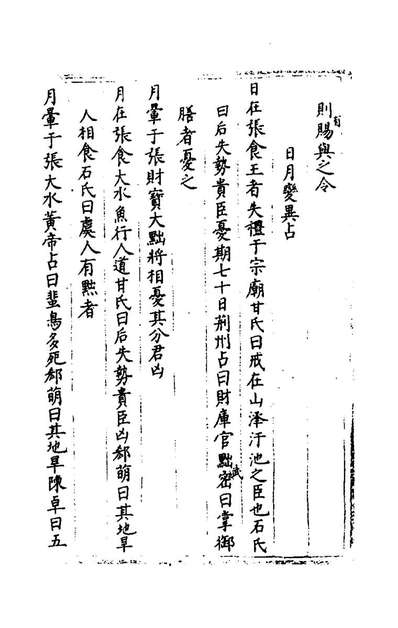 則賜與之令
日月變異占
日在張食王者失禮于宗廟甘氏曰戒在山澤汙池之臣也石氏
曰后失勢貴臣憂期七十日荊州占曰財庫官黜武密曰掌御
膳者憂之
月暈于張財寶大黜將相憂其分君凶
月在張食大水魚行人道甘氏曰后失勢貴臣凶郗萌曰其地旱
人相食石氏曰虞人有黜者
月暈于張大水黃帝占曰蜚鳥多死郗萌曰其地旱陳卓曰五